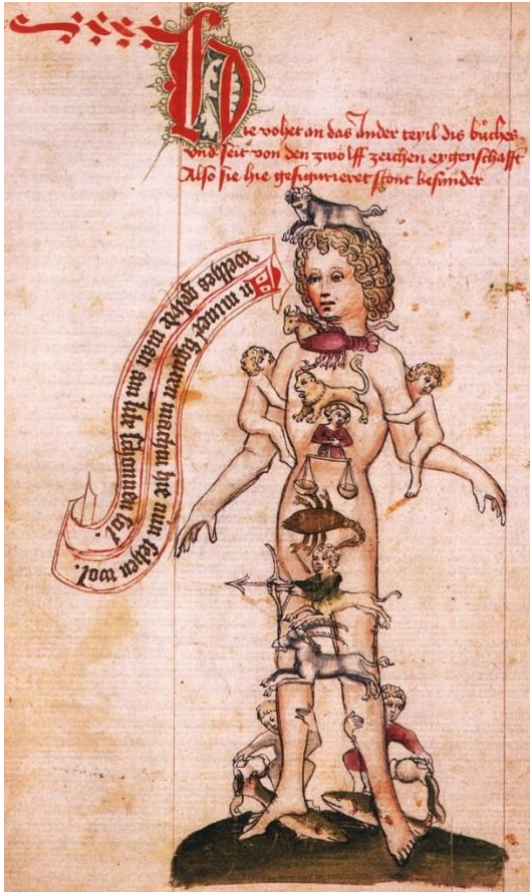 Hie vohet an das Ander teyil dis bůches
Vnd seit von den zwölff zeichen eygenschafft
Also sie hie gefigurieret stont besunder
In miner figuren machtu hie nun sehen wol.
welhes gelide man am iche schonen sol.